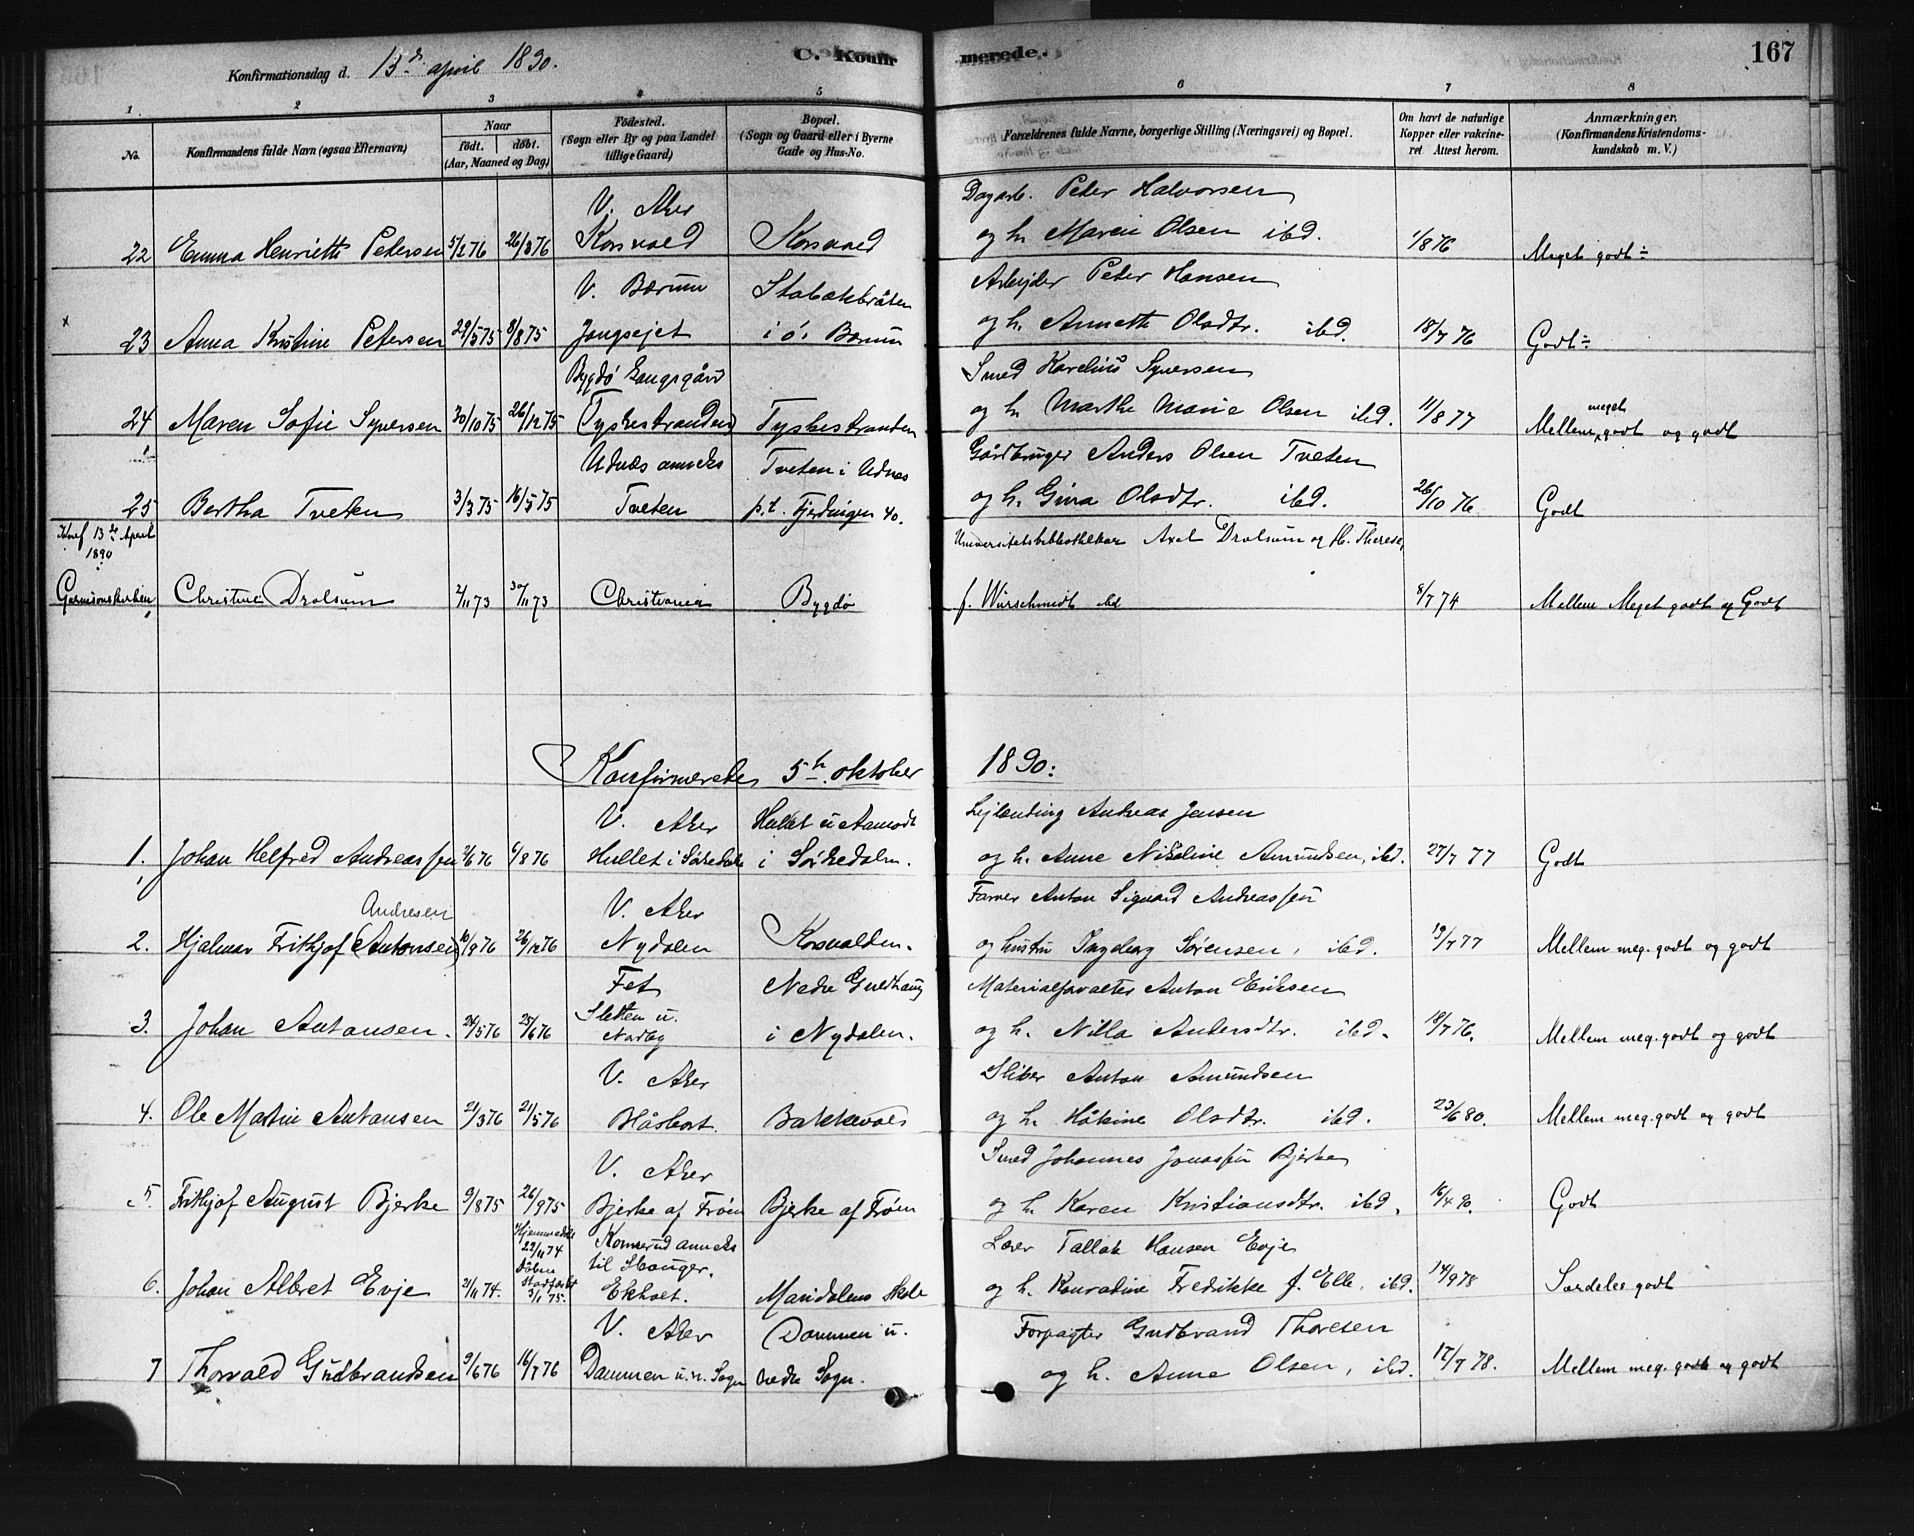 Konfirmationsdag d. 13de april 1890. C. Konfirmerede. 167
1 2 3 4 5 6 7 8
No. Konfirmandens fulde Navn (ogsaa Efternavn) Naar født. døbt. (Aar, Maaned og Dag) Fødested. (Sogn eller By og paa Landet tillige Gaard) Bopæl. (Sogn og Gaard eller i Byerne Gade og Hus-No. Forældrenes fulde Navne, borgerlige Stilling (Næringsvei) og Bopæl. Om havt de naturlige Kopper eller vakcineret Attest herom. Anmærkninger. (Konfirmandens Kristendomskundskab m. V.)
V. Aker Dagarb. Peter Halvorsen
22 Emma Henriette Petersen 5/2 76 26/3 76 Korsvold Korsvold og h. Maren Olsen ibd. 1/8 76 Meget godt ÷
V. Bærum Stabækbråten Arbejder Peter Hansen
x 23 Anna Kristine Petersen 29/5 75 8/8 75 Jongsejet i ø. Bærum og h. Annette Olsdtr. ibd. 18/7 76 Godt ÷
Bygdø Smed Karelius Syversen
24 Maren Sofie Syversen 30/10 75 26/12 75 (Tyskestranden) Tyskestranden og h. Marthe Marie Olsen ibd. 11/8 77 Mellem meget godt og godt
Udnæs anneks Tveten i Udnæs Gårdbruger Anders Olsen Tveten
25 Bertha Tveten 3/3 75 16/5 75 Tveten p.t. Fjerdingen 40. og h. Gina Olsdtr. ibd. 26/10 76 Godt
Konf 13de April 1890 Universitetsbibliothekar Axel Drolsum og H. Therese,
Garnisonskirken Christine Drolsum 2/11 73 30/11 73 Christiania Bygdø f. Würschmidt ibd 8/7 74 Mellem Meget godt og Godt
Konfirmerede 5te oktober 1890:
V. Aker Hullet u Aamodt Lejlænding Andreas Jensen
1. Johan Helfred Andreassen 2/6 76 6/8 76 Hullet i Sørkedalen i Sørkedalen. og h. Anne Nikoline Amundsen, ibd. 27/7 77 Godt
Andresen V. Aker Farver Anton Sigvard Andreassen
2. Hjalmar Frithjof (Antonsen) 10/9 76 26/12 76 Nydalen Korsvolden. og hustru Ingeborg Sørensen, ibd. 19/7 77 Mellem meg. godt og godt
Fet Nedre Gulhaug Materialforvalter Anton Eriksen
3. Johan Antonsen. 24/5 76 25/6 76 Sletten u. Nordby i Nydalen. og h. Nilla Andersdtr. ibd. 18/7 76. Mellem meg. godt og godt
V. Aker Sliber Anton Amundsen
4. Ole Martin Antonsen 21/3 76 21/5 76 Blåsbort. Bakkevold og h. Håkine Olsdtr. ibd. 23/6 80. Mellem meg. godt og godt
V. Aker Smed Johannes Jonassen Bjerke
5. Frithjof August Bjerke 9/8 75 26/9 75 Bjerke af Frøen Bjerke af Frøen og h. Karen Kristiansdtr. ibd. 16/4 90. Godt
Hjemmedøbt 22/11 74 Dåben stadfæstet 3/1 75. Komnerud anneks til Hauger. Lærer Tallak Hansen Evje
6. Johan Albret Evje 21/11 74. Ekholt. Maridalens Skole og h. Konradine Fredrikke f. Elle, ibd. 14/9 78 Særdeles godt
V. Aker Dammen u. Forpagter Gudbrand Thoresen
7 Thorvald Gudbrandsen 9/6 76 16/7 76 Dammen u. n. Sogn nedre Sogn. og h. Anne Olsen, ibd. 17/7 78. Mellem meg. godt og godt